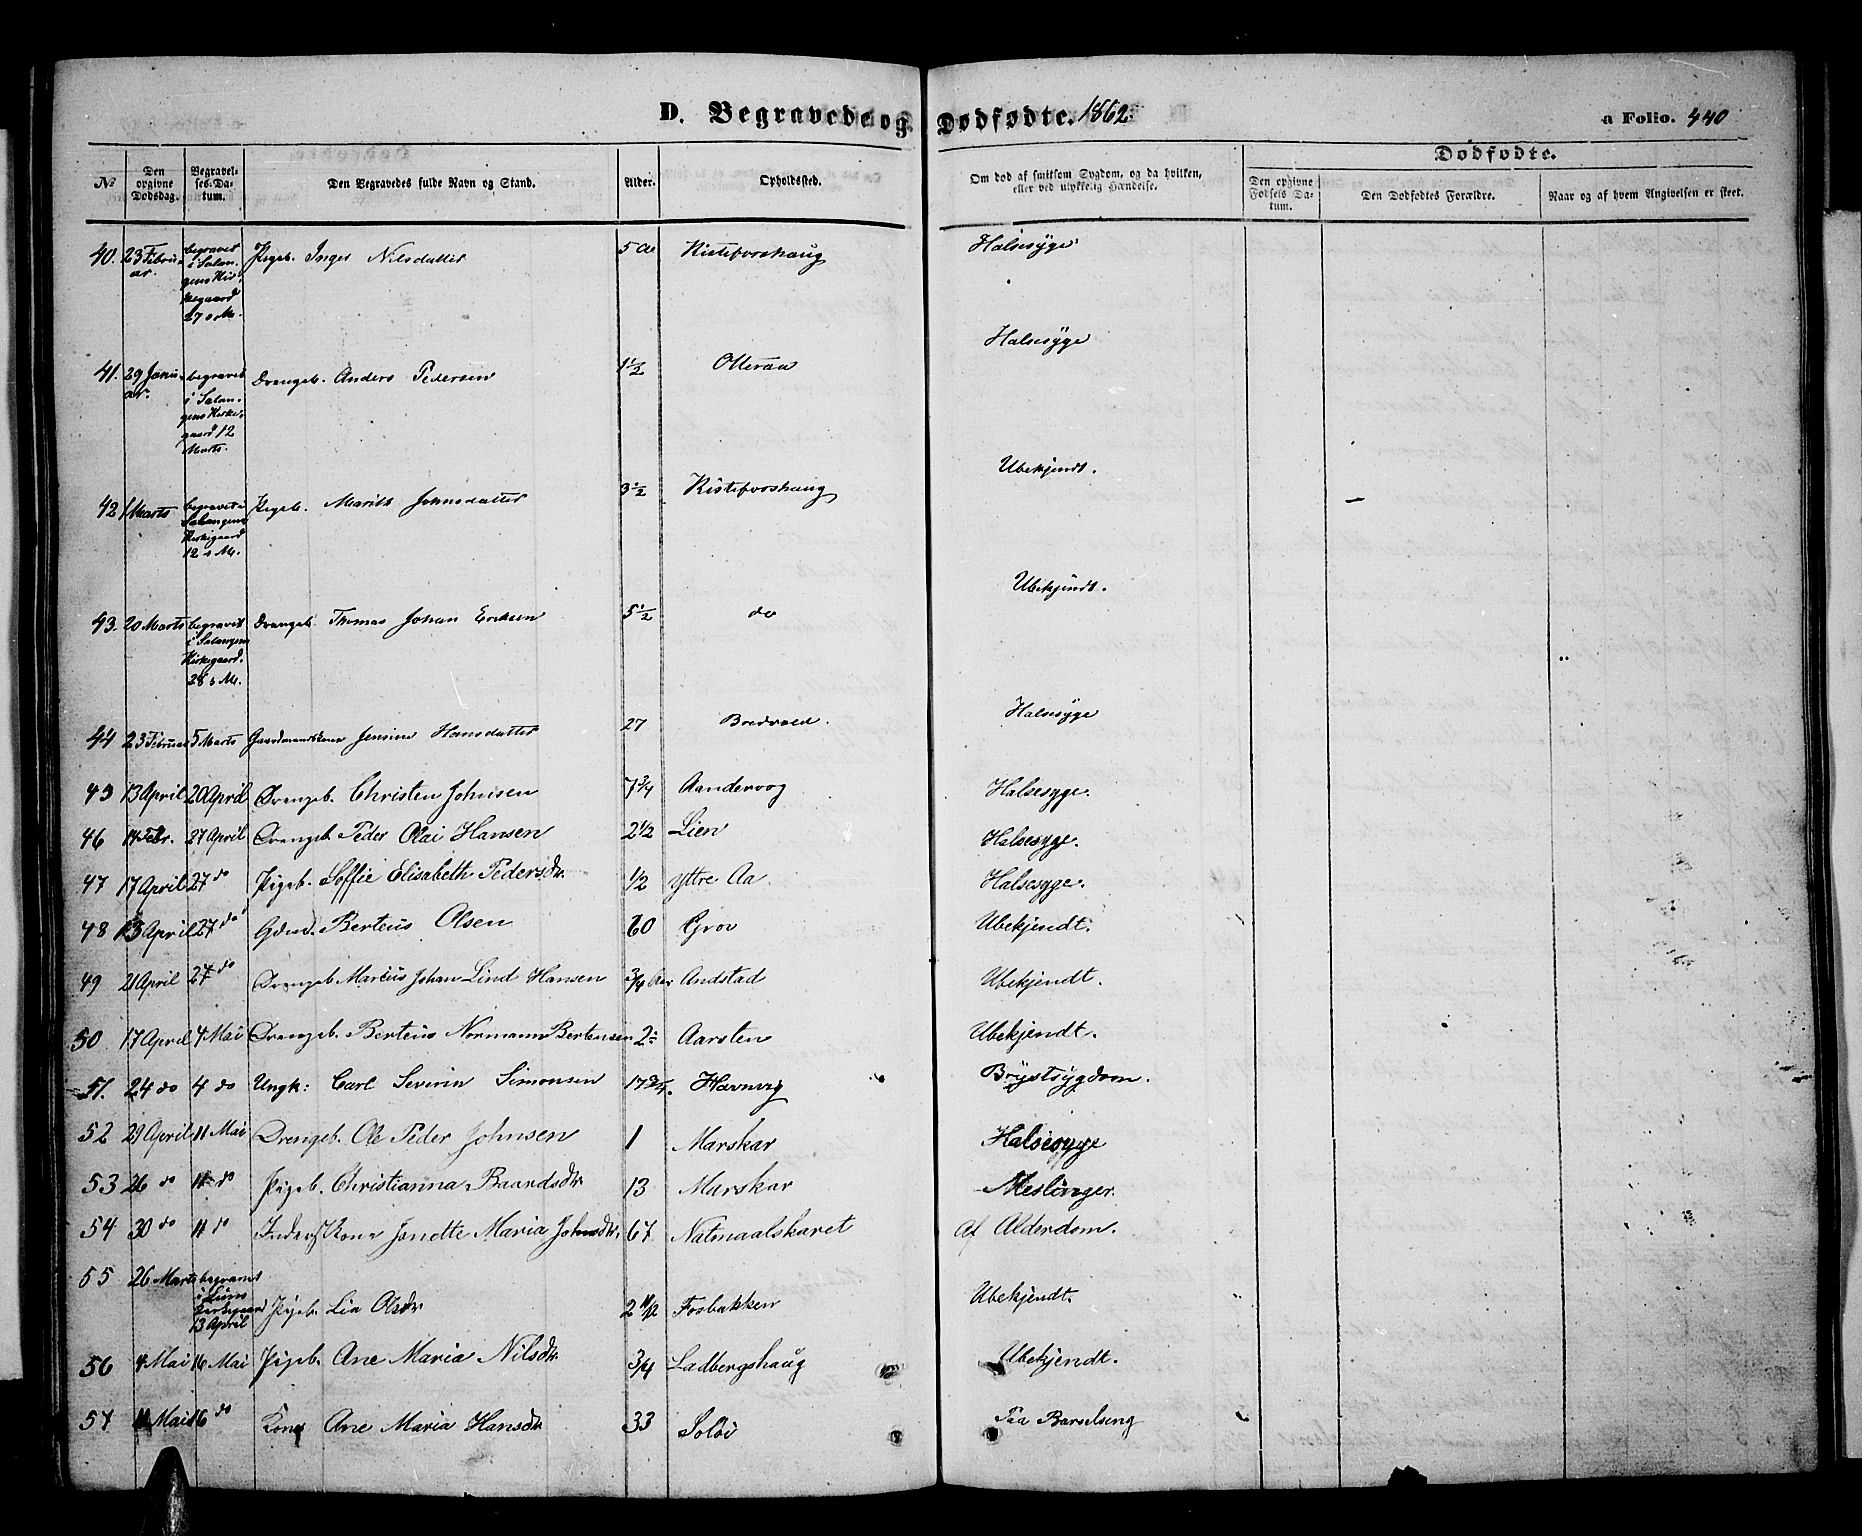 D. Begravede og Dødfødte. 1862.
a Folio. 440
№ Den opgivne Dødsdag. Begravelses-Datum. Den Begravedes fulde Navn og Stand. Alder. Opholdssted. Om død af smitsom Sygdom, og da hvilken, eller ved ulykkelig Hændelse.
Dødfødte.
Den opgivne Fødsels Datum. Den Dødfødtes Forældre. Naar og af hvem Angivelsen er skeet.
40. 23 Februar. begravet i Salangens Kirkegaard 27 s M. Pigeb. Inger Nilsdatter 5 Aar Kisteforshaug Halsesyge
41. 29 Januar. begravet i Salangens Kirkegaard 12 Marts. Drengeb. Anders Pedersen 1 1/2 Otteraa Halsesyge
42 1 Marts begravet i Salangens Kirkegaard 12 s M. Pigeb. Marith Johnsdatter 3 1/2 Kisteforshaug Ubekjendt.
43. 20 Marts begravet i Salangens Kirkegaard. 28 s M. Drengeb. Thomas Johan Eriksen 5 1/2 do Ubekjendt.
44 23 Februar 5 Marts Gaardmandskone Jensine Hansdatter 27 Bredvold. Halsesyge
45 13 April 20 April Drengeb. Christen Johnsen 7 3/4 Aandervog Halsesyge.
46 14 Febr. 27 April Drengeb. Peder Olai Hansen 2 1/2 Lien Halsesyge.
47 17 April 27 do Pigeb. Soffie Elisabeth Pedersdtr. 1/2 Yttre Aa Halsesyge.
48 13 April 27 do Gdmd. Berteus Olsen 60 Grov Ubekjendt.
49 21 April 27 do Drengeb. Marcus Johan Lind Hansen 3/4 Aar Andstad Ubekjendt.
50 17 April 4 Mai Drengeb. Berteus Normann Bertensen 2 Aarsten Ubekjendt.
51. 24 do 4 do Ungk: Carl Severin Simonsen 17 3/4. Havnvig Brystsygdom.
52 29 April 11 Mai Drengeb. Ole Peder Johnsen 1 Marskar Halsesyge
53 26 do 11 do Pigeb. Christianna Baardsdtr 13 Marskar Meslinger.
54 30 do 11 do Inderst Kone Janette Maria Johnsdtr. 67 Natmaalskaret Af Alderdom.
55 26 Marts begravet i Kirkegaard 13 April Pigeb. Lia Olsdtr 2 Fosbakken Ubekjendt.
56 4 Mai 16 Mai Pigeb. Ane Maria Nilsdtr 3/4 Ladbergshaug Ubekjendt.
57 11 Mai 16 do Kone Ane Maria Hansdtr 33 Soløi Paa Barselseng